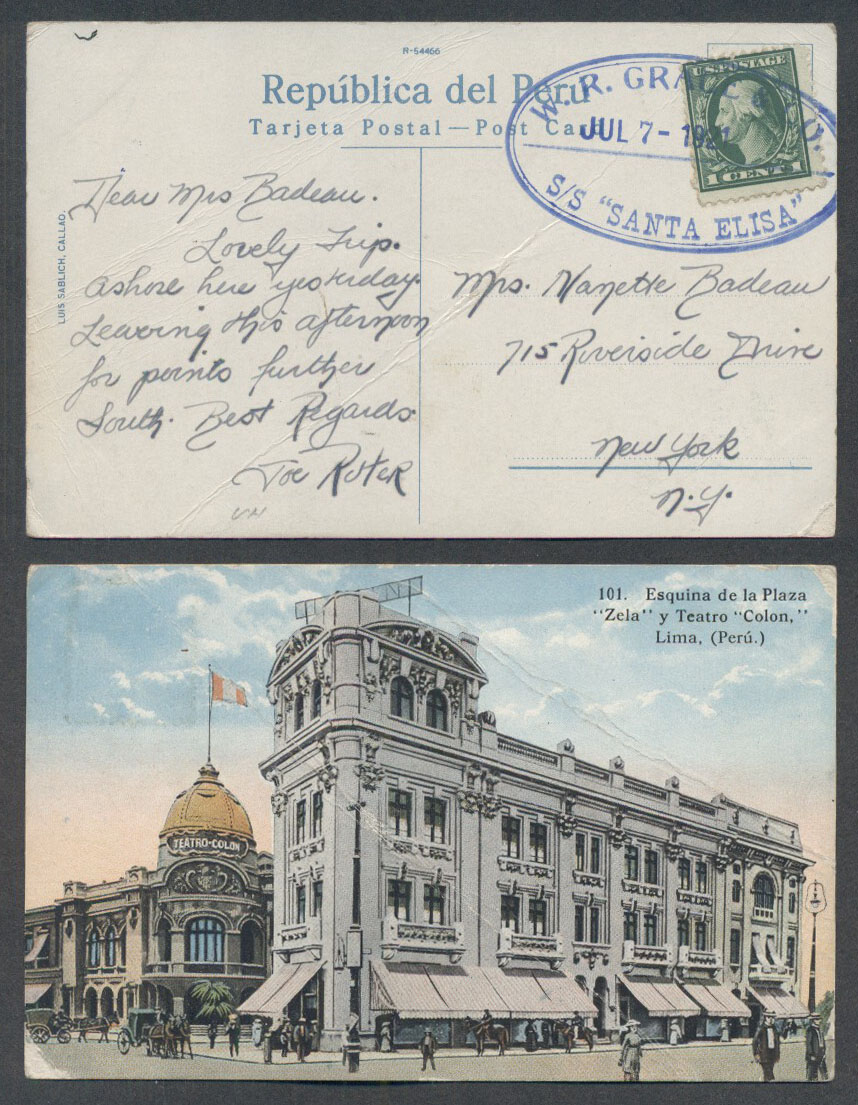 R-54466
República del Perú
Tarjeta Postal — Post Card
W. R. GRACE & CO.
JUL 7 - 1921
S/S "SANTA ELISA"
U.S. POSTAGE
1 CENT 1
LUIS SABLICH, CALLAO.
Dear Mrs Badeau.
Lovely Trip.
Ashore here yesterday.
Leaving this afternoon
for points further
South. Best Regards
Joe
Mrs. Nanette Badeau
715 Riverside Drive
New York
N.Y.
101. Esquina de la Plaza
"Zela" y Teatro "Colon,"
Lima, (Perú.)
TEATRO-COLON